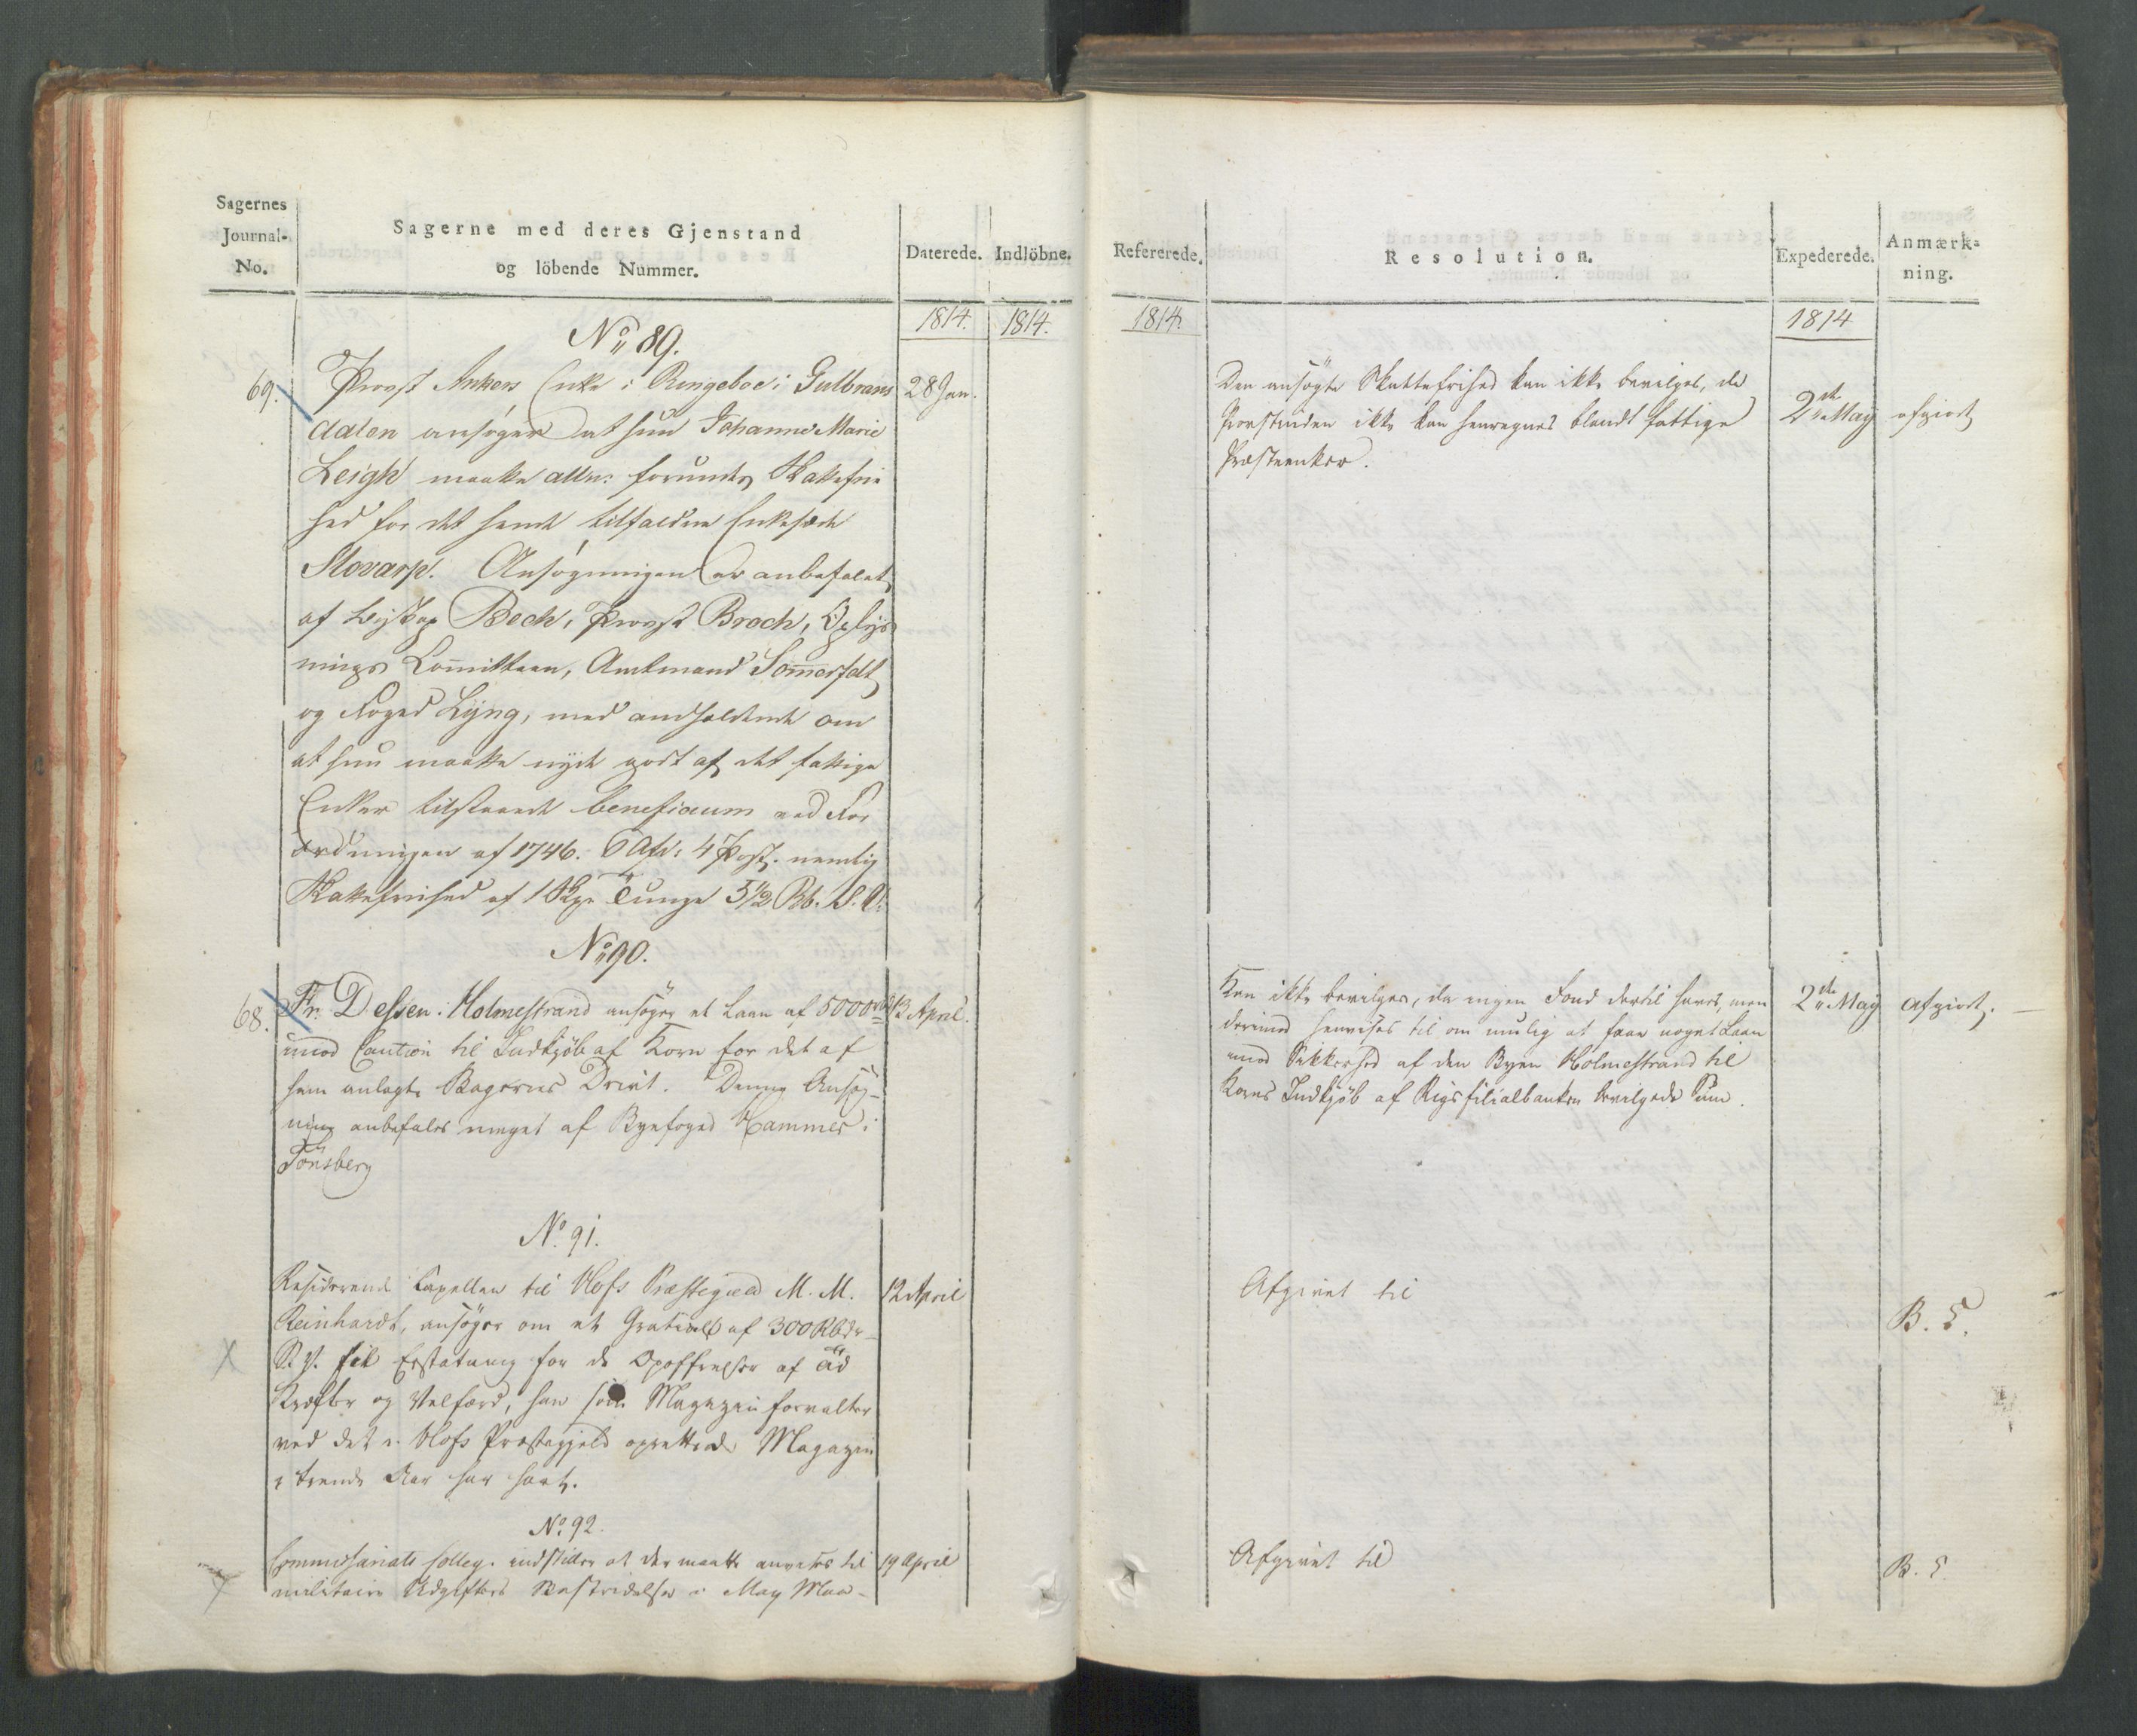 Sagernes
Journal-
No.
Sagerne med deres Gjenstand
og löbende Nummer.
Daterede.
Indlöbne.
1814.
1814.
No 89.
69.
Provst Ankers Enke i Ringeboe i Gulbrans
28 Jan.
dalen ansøger at hun Johanne Marie
Leigh maatte allern: forundes Skattefrie
hed for det hende tilfaldne Enkesæde
Stovarp. Ansøgningen er anbefalet
af Biskop Bech, Provst Broch, Oplys
nings Com̄itteen, Amtmand Som̄erfelt
og Foged Lyng, med andholdende om
at hun maatte nyde godt af det fattige
Enker tilstaaede beneficium ved For
ordningen af 1746. 4 Post. nemlig
Skattefrihed af 1 Skp. Tunge 5½ Bb.
No 90.
68.
Fr. Dessen i Holmestrand ansøger et Laan af 5000 rbd
13 April.
imod Caution til Indkjöb af Korn for det af
ham anlagte Bageries Drivt. Denne Ansøg-
ning anbefales meget af Byefoged Hammer i
Tönsberg
No 91.
Residerende Capellan til Hofs Præstegield M. M.
12 April
Reinhardt, ansøger om et Gratiale af 300 Rbdr
S.V. til Erstatning for de Opoffrelser af
Kræfter og Velfærd, han som Magazinforvalter
ved det i Hofs Præstegjeld oprettede Magazin
i trende Aar har havt.
No 92.
Commissariats Colleg. indstiller at der maatte anvises til
19 April
militaire Udgifters Bestridelse i May Maa-
Refererede.
Resolution.
Expederede.
Anmærk-
ning.
1814.
1814
Den ansøgte Skattefrihed kan ikke bevilges, da
Provstinden ikke kan henregnes blandt fattige
Præsteenker.
2de May
afgiort
Kan ikke bevilges, da ingen Fond dertil haves, men
derimod henvises til om mulig at faae noget Laan
mod Sikkerhed af den Byen Holmestrand til
Korns Indkjöb af Rigsfilialbanken bevilgede Sum.
2de May
Afgiort.
Afgivet til
B. 5.
Afgivet til
B. 5